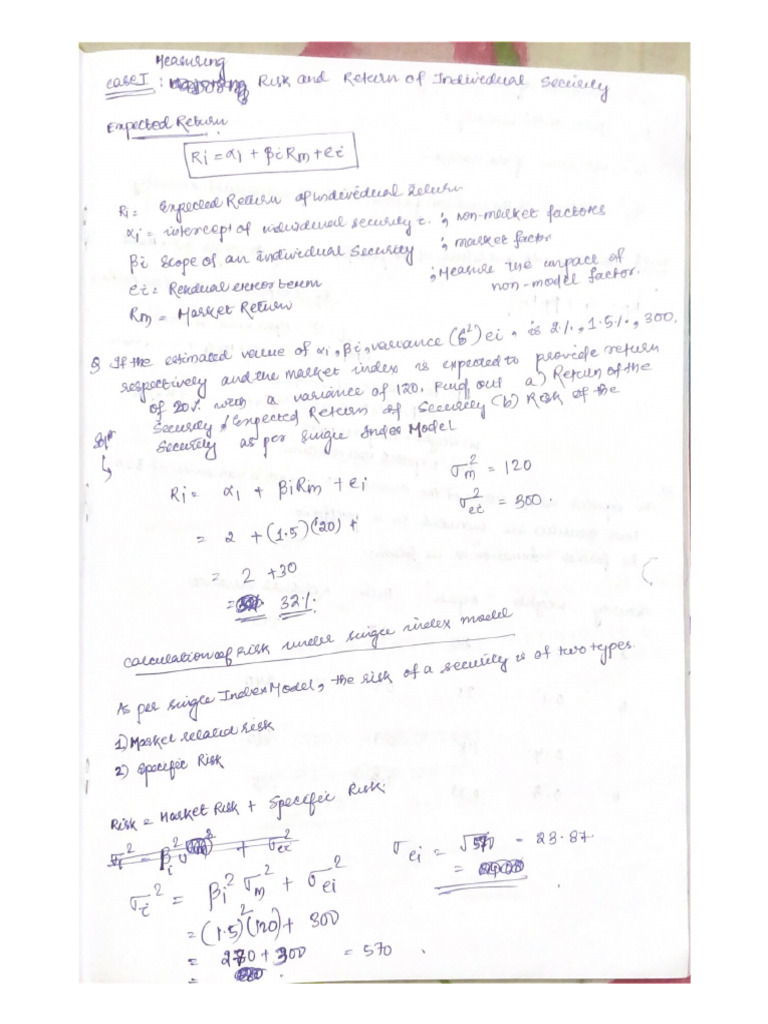 Measuring
Case I : Risk and Return of Individual Security
Expected Return
Ri = α1 + βi Rm + ei
Ri = Expected Return of individual Return
αi = intercept of individual security i. ; non-market factors
βi Scope of an individual Security ; market factor
ei = Residual error term ; Measure the impact of non-model factor.
Rm = Market Return
Q If the estimated value of α1, βi, variance (6²) ei, is 2%, 1.5%, 300.
respectively and the market index is expected to provide return
of 20% with a variance of 120. Find out a) Return of the
Security / Expected Return of Security (b) Risk of the
Security as per Single Index Model
Solⁿ
Ri = α1 + βi Rm + ei
σm² = 120
σei² = 300.
= 2 + (1.5)(20) +
= 2 + 30
= 32%.
Calculation of Risk under single index model
As per single Index Model, the risk of a security is of two types.
1) Market related risk
2) Specific Risk
Risk = Market Risk + Specific Risk.
σi² = βi² σm² + σei²
= (1.5)² (120) + 300
= 270 + 300 = 570.
=
σei = √570 = 23.87.
=